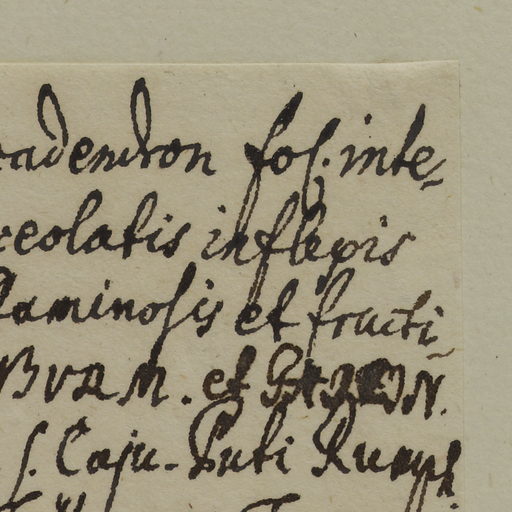 adendron fol. inte-
ceolatis inflexis
staminosis et fructi
BURM. et
s. Caju-Puti Rumph